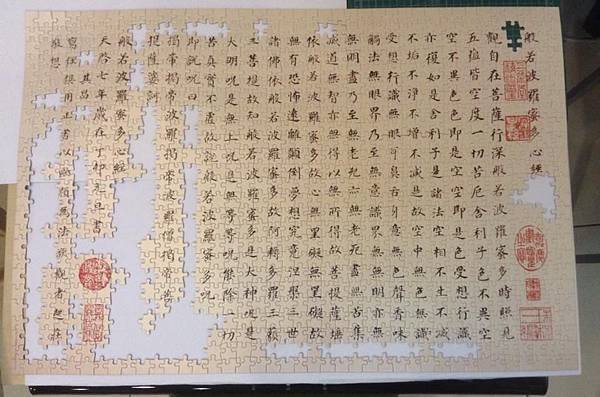 般若波羅蜜多心經
觀自在菩薩行深般若波羅蜜多時照見
五蘊皆空度一切苦厄舍利子色不異空
空不異色色即是空空即是色受想行識
亦復如是舍利子是諸法空相不生不滅
不垢不淨不增不減是故空中無色無
受想行識無眼耳鼻舌身意無色聲香味
觸法無眼界乃至無意識界無無明亦無
無明盡乃至無老死亦無老死盡無苦集
滅道無智亦無得以無所得故菩提薩埵
依般若波羅蜜多故心無罣礙無罣礙故
無有恐怖遠離顛倒夢想究竟涅槃三世
諸佛依般若波羅蜜多故阿耨多羅三藐
三菩提故知般若波羅蜜多是大神咒是
大明咒是無上咒是無等等咒能除一切
苦真實不虛故說般若波羅蜜多咒
即說咒曰
揭帝揭帝波羅揭帝波羅僧揭帝菩
提薩婆訶
般若波羅蜜多心經
天啟七年歲在丁卯元旦書
其昌
寫經用正書以頗無法觀者